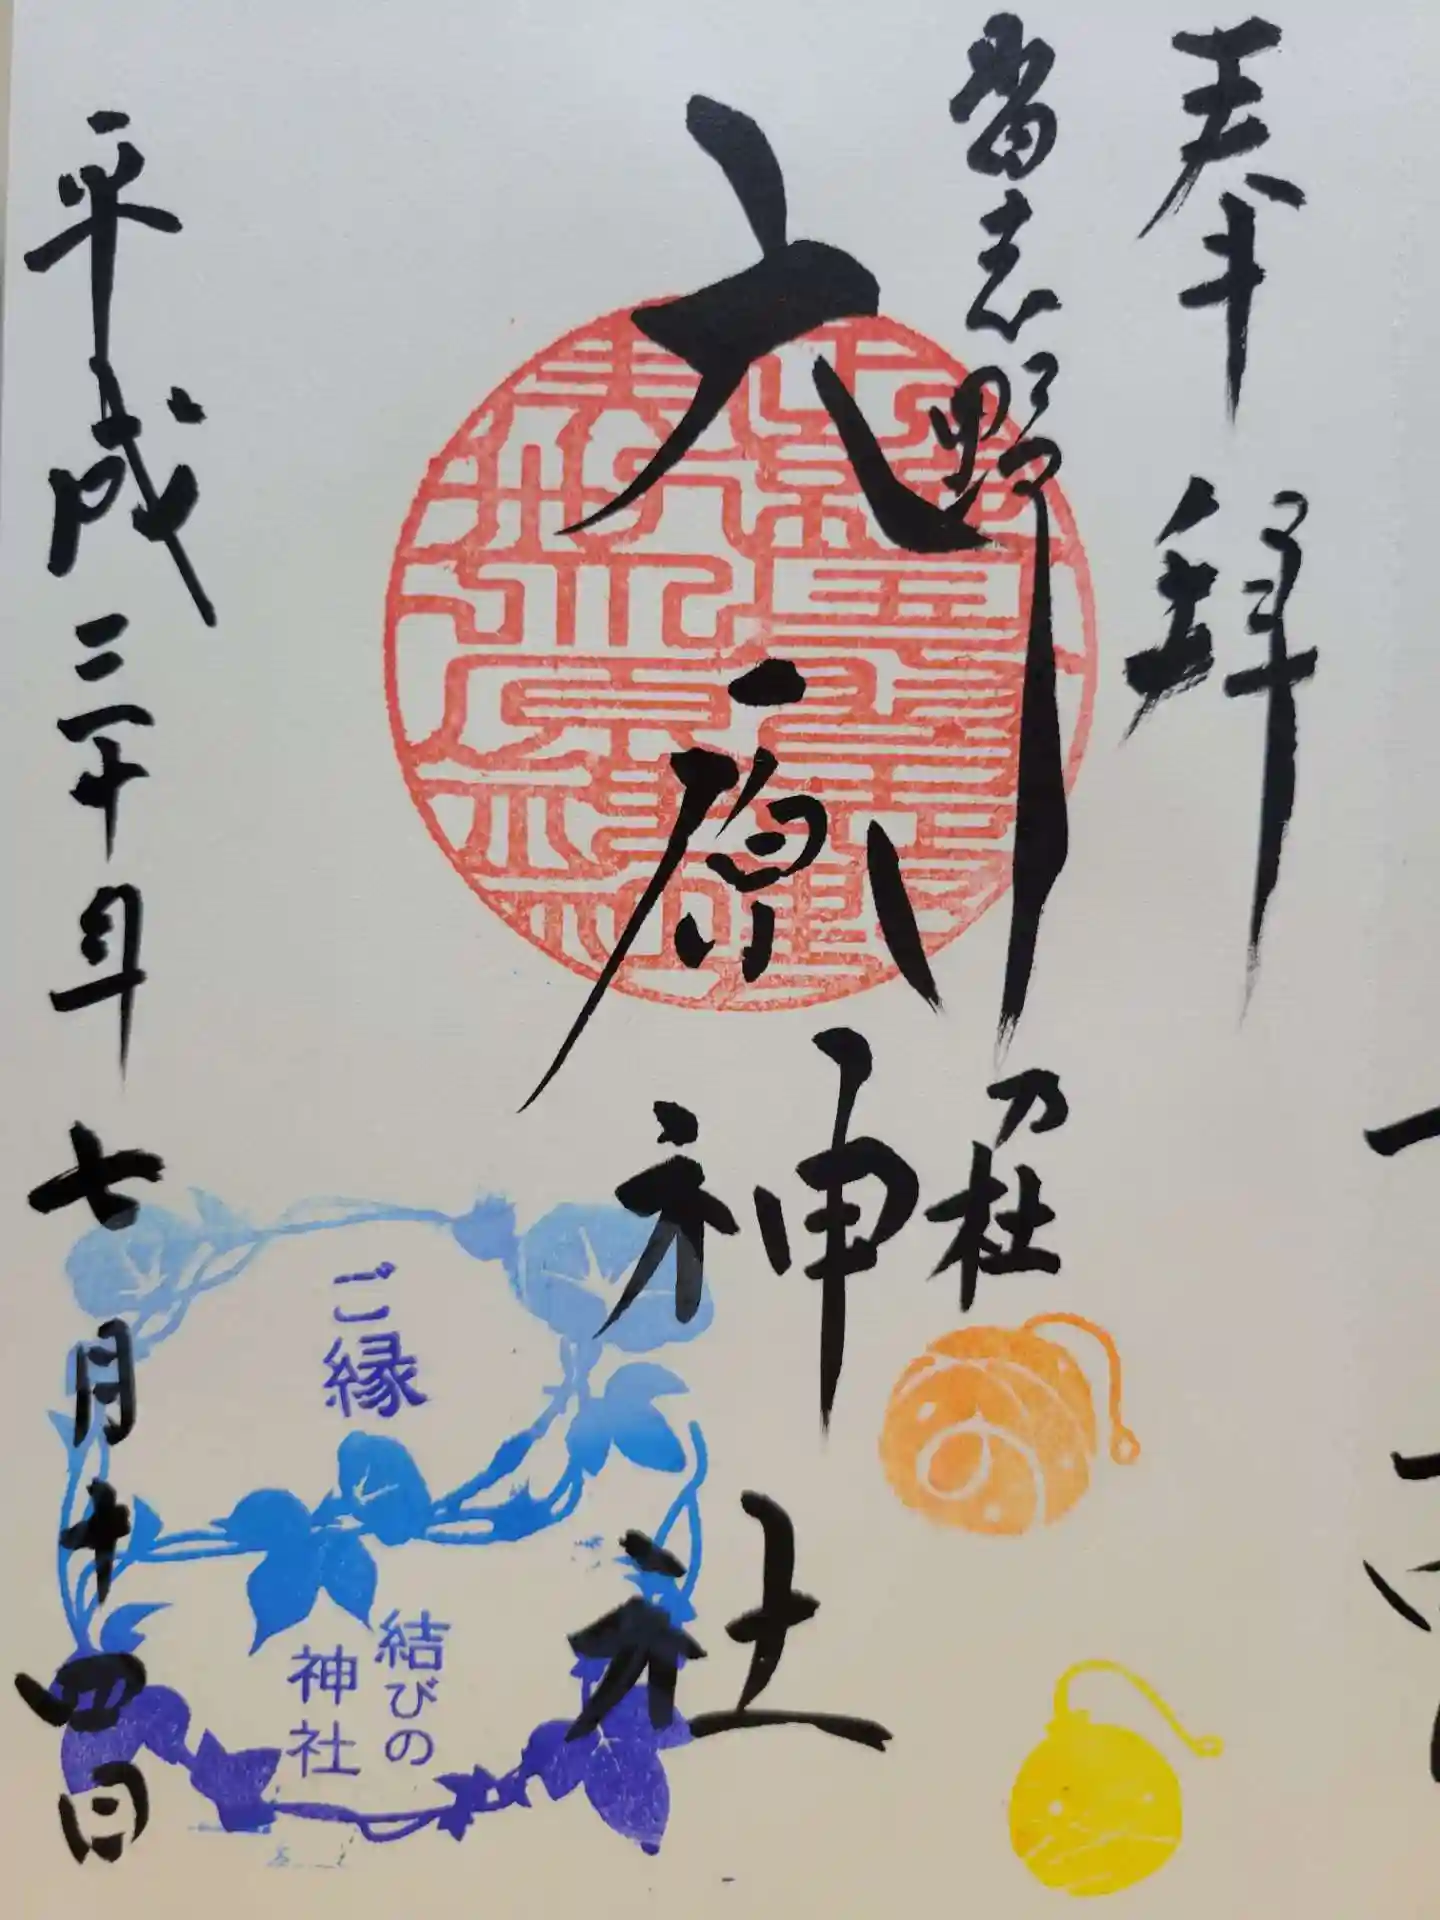 奉拝
習志野乃杜
大原神社
平成三十年七月十四日
ご縁
結びの
神社